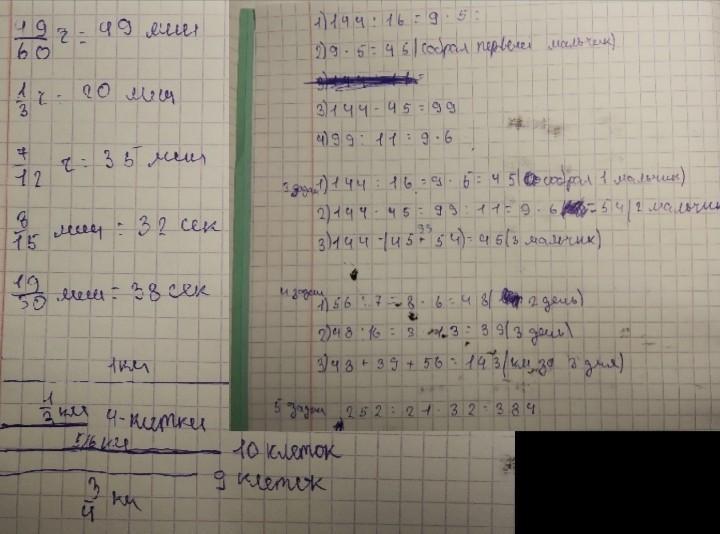 49/60 ч = 49 мин
1/3 ч = 20 мин
7/12 ч = 35 мин
8/15 мин = 32 сек
19/30 мин = 38 сек
1км
1/3 км 4-клетки
5/6 км 10 клеток
9 клеток
3/4 км
1) 144 : 16 = 9 · 5 =
2) 9 · 5 = 45 (собрал первый мальчик)
3) 144 - 45 = 99
4) 99 : 11 = 9 · 6
3 задан 1) 144 : 16 = 9 · 5 = 45 (собрал 1 мальчик)
2) 144 - 45 = 99 : 11 = 9 · 6 = 54 (2 мальчик
3) 144 - (45 + 54) = 45 (3 мальчик)
4 задан
1) 56 : 7 = 8 · 6 = 48 (2 день)
2) 48 : 16 = 3 · 13 = 39 (3 день)
3) 48 + 39 + 56 = 143 (км за 3 дня)
5 задан 252 : 21 · 32 = 384